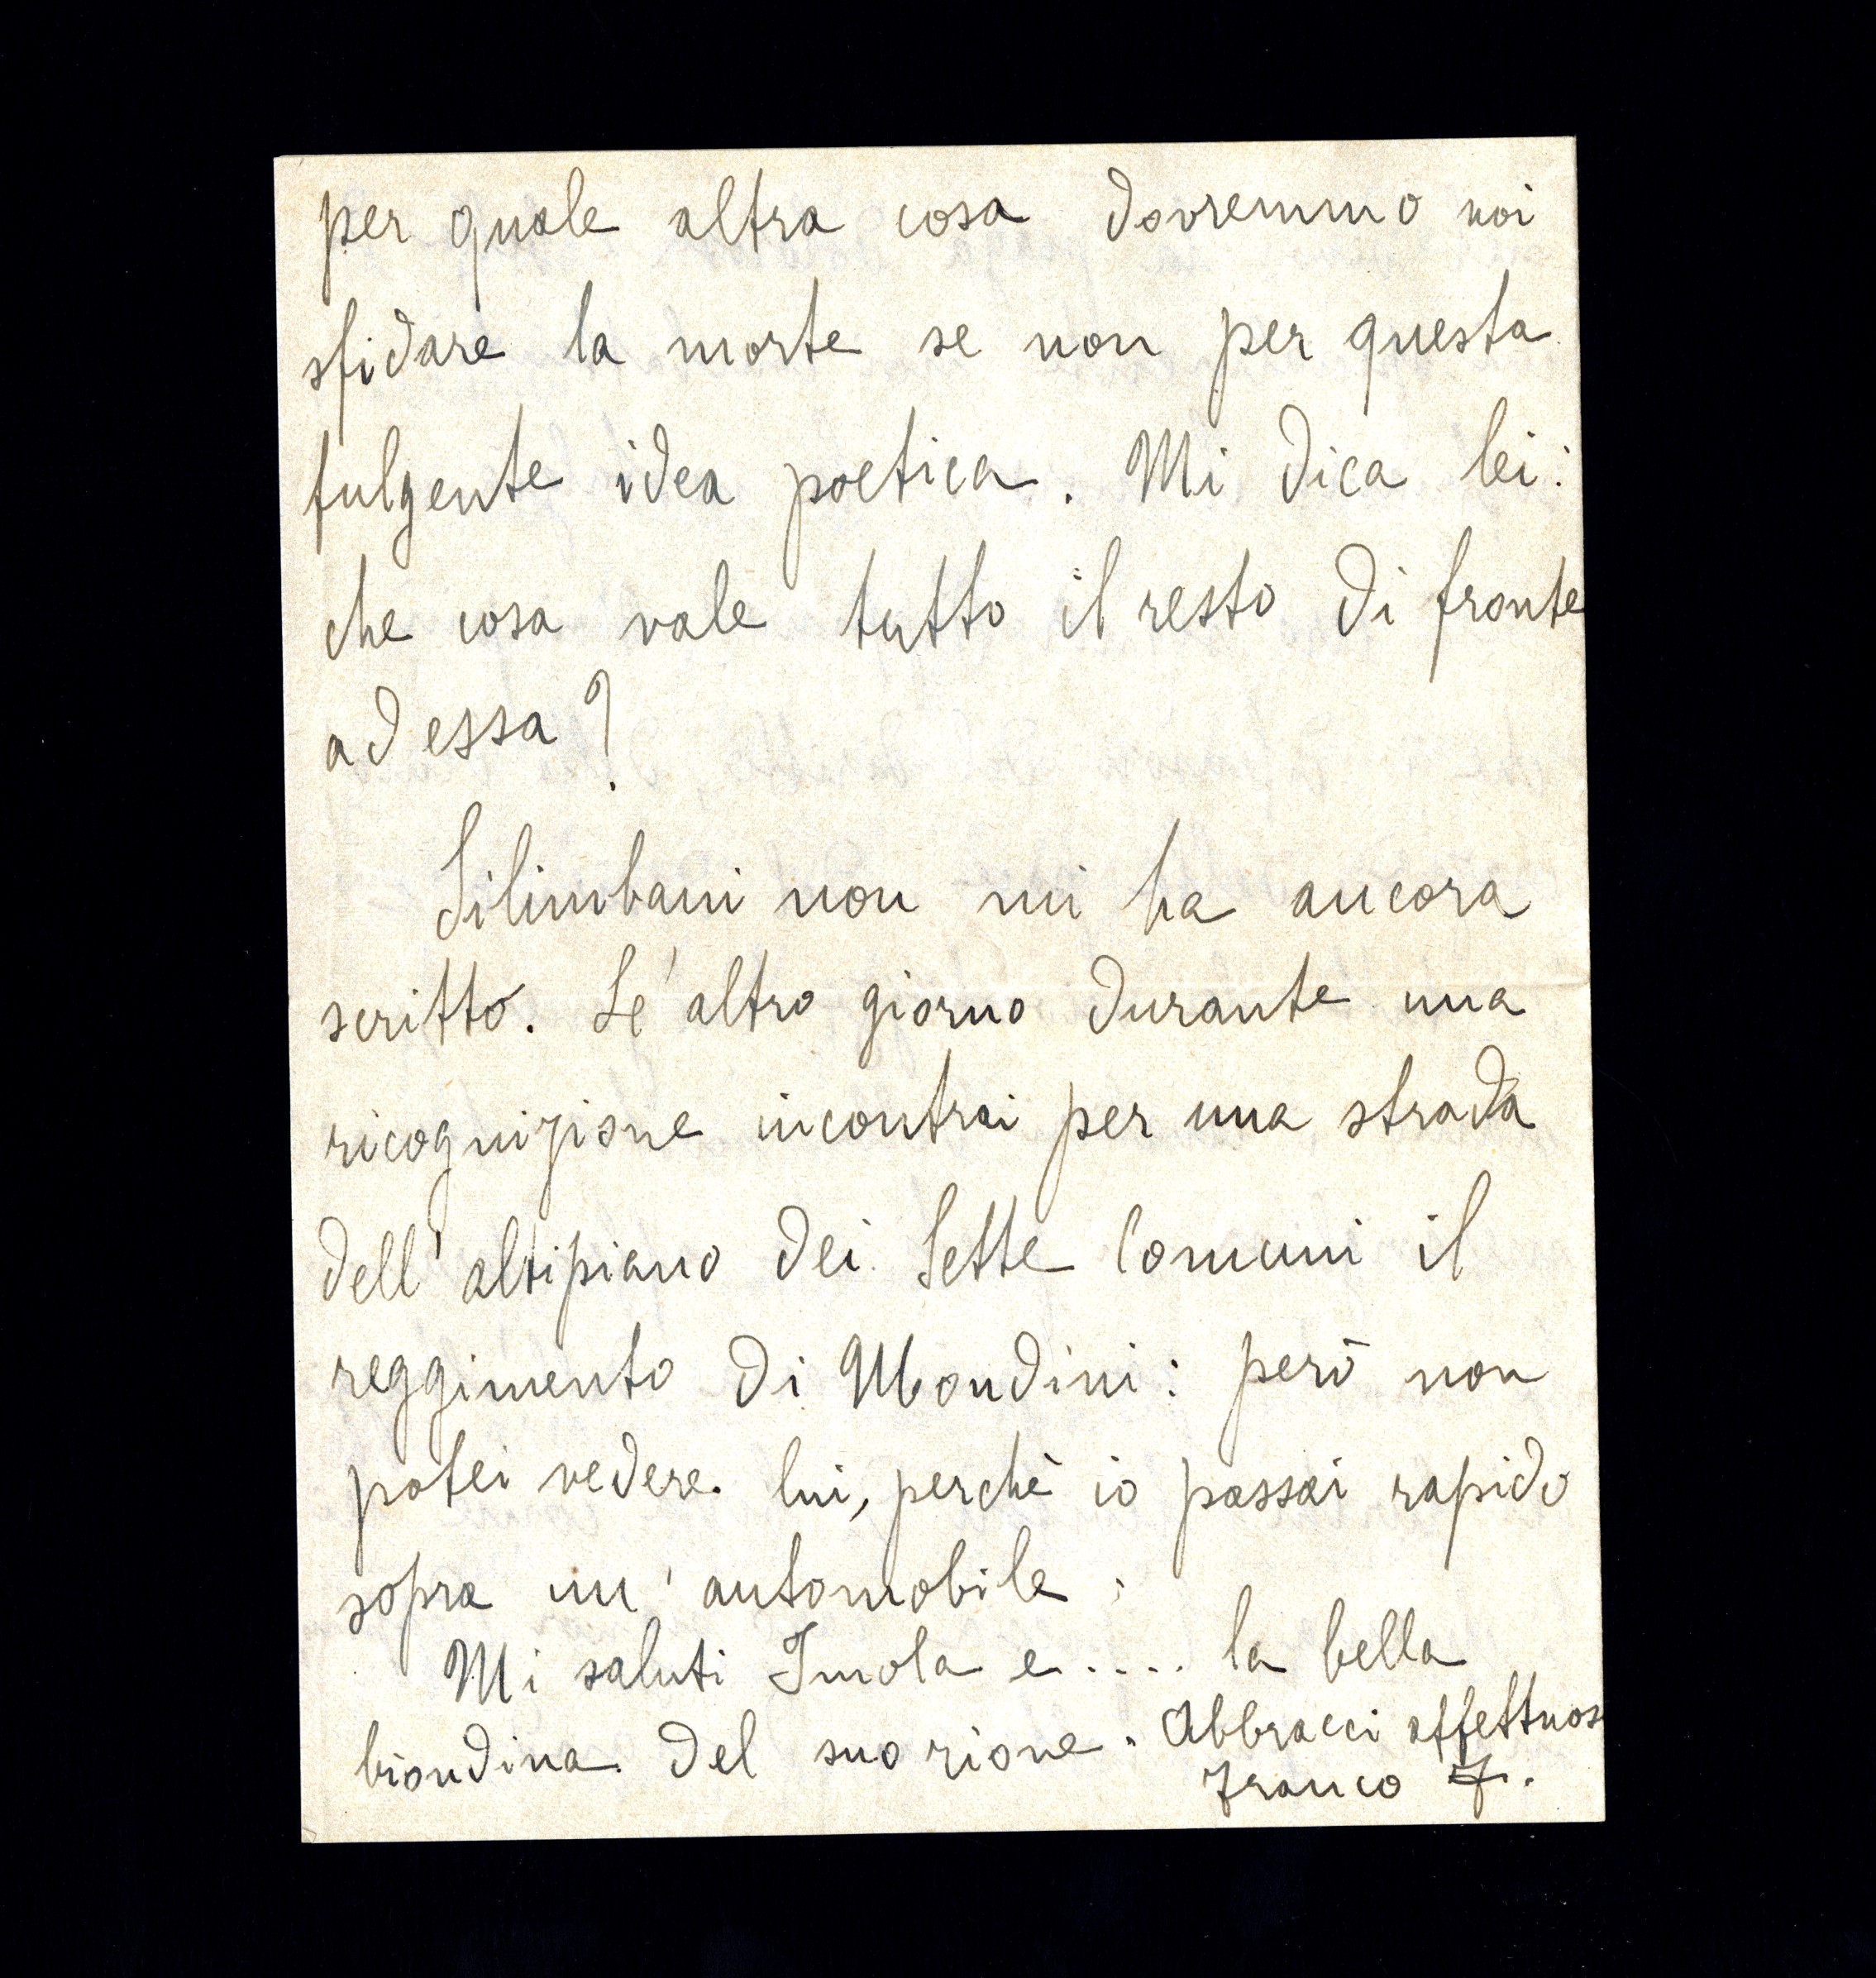 per quale altra cosa dovremmo noi
sfidare la morte se non per questa
fulgente idea poetica. Mi dica lei:
che cosa vale tutto il resto di fronte
ad essa?
Silimbani non mi ha ancora
scritto. L'altro giorno durante una
ricognizione incontrai per una strada
dell'altipiano dei Sette Comuni il
reggimento di Mondini: però non
potei vedere lui, perchè io passai rapido
sopra un'automobile.
Mi saluti Imola e.... la bella
biondina del suo rione. Abbracci affettuosi
Franco F.